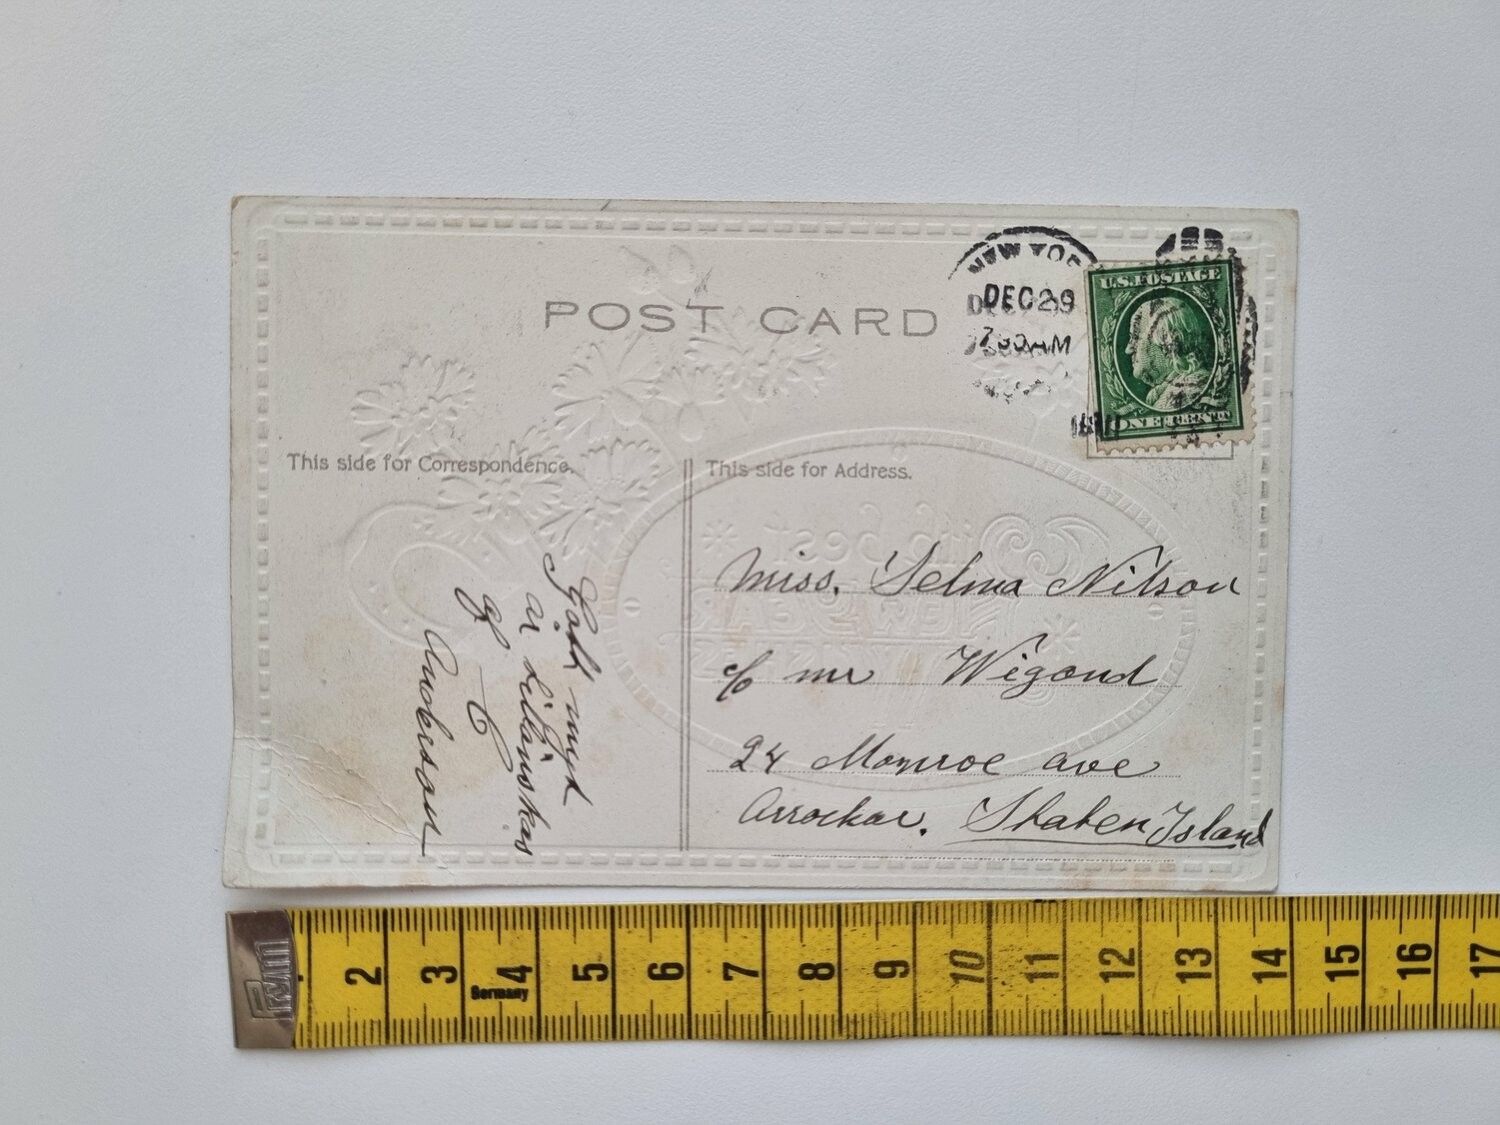 POST CARD
NEW YOR
DEC 29
7 30 AM
U.S. POSTAGE
ONE CENT
This side for Correspondence.
This side for Address.
Miss. Selma Nilson
c/o mr Wigand
24 Monroe ave
Arrochar. Staten Island
Godt nyt
af
C
Anderson
With best
NEW YEAR
WISHES
PRYM
2 3 4 5 6 7 8 9 10 11 12 13 14 15 16 17
Germany